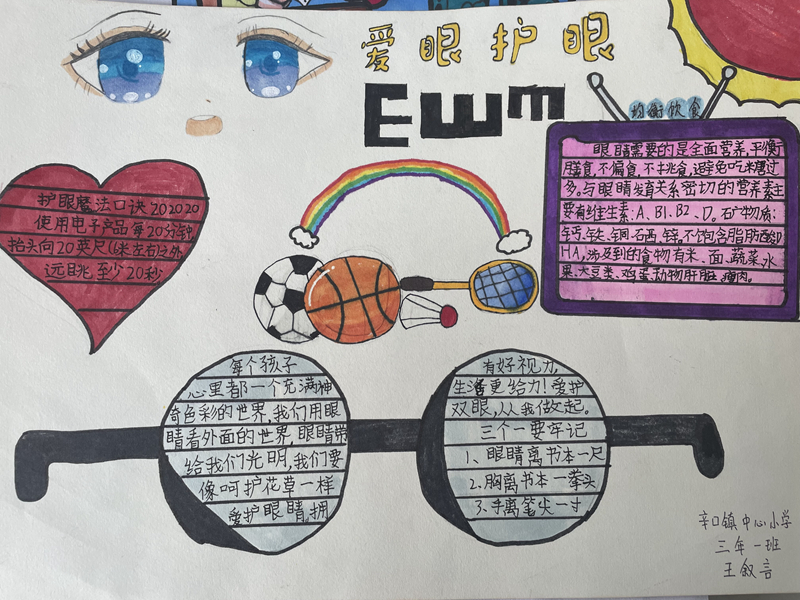 爱眼护眼
EWm
均衡饮食
眼睛需要的是全面营养,平衡
膳食,不偏食,不挑食,避免吃糖过
多。与眼睛发育关系密切的营养素主
要有维生素:A、B1、B2、D。矿物质:
钙、铁、铜、硒、锌。不饱含脂肪酸D
HA,涉及到的食物有米、面、蔬菜、水
果、大豆类、鸡蛋、动物肝脏、瘦肉。
护眼魔法口诀202020
使用电子产品每20分钟
抬头向20英尺(6米左右)之外
远眺至少20秒
每个孩子
心里都一个充满神
奇色彩的世界,我们用眼
睛看外面的世界,眼睛带
给我们光明,我们要
像呵护花草一样
爱护眼睛,拥
有好视力,
生活更给力!爱护
双眼,从我做起。
三个一要牢记
1、眼睛离书本一尺
2、胸离书本一拳头
3、手离笔尖一寸
辛口镇中心小学
三年一班
王叙言